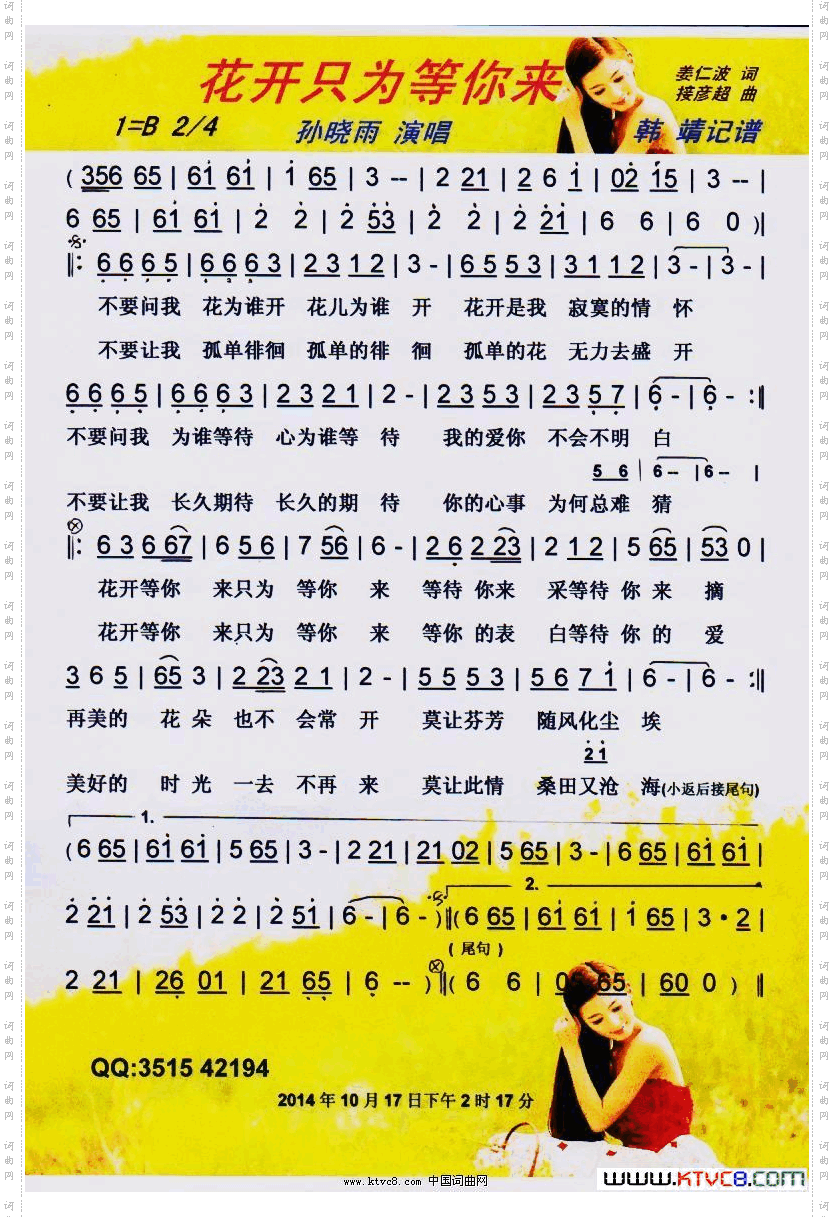 花开只为等你来
姜仁波 词
接彦超 曲
1=B 2/4
孙晓雨 演唱
韩 靖记谱
( 356 65 | 61 61 | 1 65 | 3 -- | 2 21 | 2 6 1 | 02 15 | 3 -- |
6 65 | 61 61 | 2 2 | 2 53 | 2 2 | 2 21 | 6 6 | 6 0 )|
|: 6 6 6 5 | 6 6 6 3 | 2 3 1 2 | 3 - | 6 5 5 3 | 3 1 1 2 | 3 - | 3 - |
不要问我 花为谁开 花儿为谁 开 花开是我 寂寞的情 怀
不要让我 孤单徘徊 孤单的徘 徊 孤单的花 无力去盛 开
6 6 6 5 | 6 6 6 3 | 2 3 2 1 | 2 - | 2 3 5 3 | 2 3 5 7 | 6 - | 6 - :|
不要问我 为谁等待 心为谁等 待 我的爱你 不会不明 白
5 6 | 6 -- | 6 -- |
不要让我 长久期待 长久的期 待 你的心事 为何总难 猜
|: 6 3 6 67 | 6 5 6 | 7 56 | 6 - | 2 6 2 23 | 2 1 2 | 5 65 | 53 0 |
花开等你 来只为 等你 来 等待 你来 采等待 你 来 摘
花开等你 来只为 等你 来 等你 的表 白等待 你 的 爱
3 6 5 | 65 3 | 2 23 2 1 | 2 - | 5 5 5 3 | 5 6 7 1 | 6 - | 6 - :|
再美的 花 朵 也不 会常 开 莫让芬芳 随风化尘 埃
2 1
美好的 时 光 一去 不再 来 莫让此情 桑田又沧 海(小返后接尾句)
1.
( 6 65 | 61 61 | 5 65 | 3 - | 2 21 | 21 02 | 5 65 | 3 - | 6 65 | 61 61 |
2.
2 21 | 2 53 | 2 2 | 2 51 | 6 - | 6 - )||( 6 65 | 61 61 | 1 65 | 3 • 2 |
( 尾句 )
2 21 | 26 01 | 21 65 | 6 -- )||( 6 6 | 0 65 | 60 0 ) ||
QQ:3515 42194
2014 年 10 月 17 日下午 2 时 17 分
www.ktvc8.com
www.ktvc8.com 中国词曲网